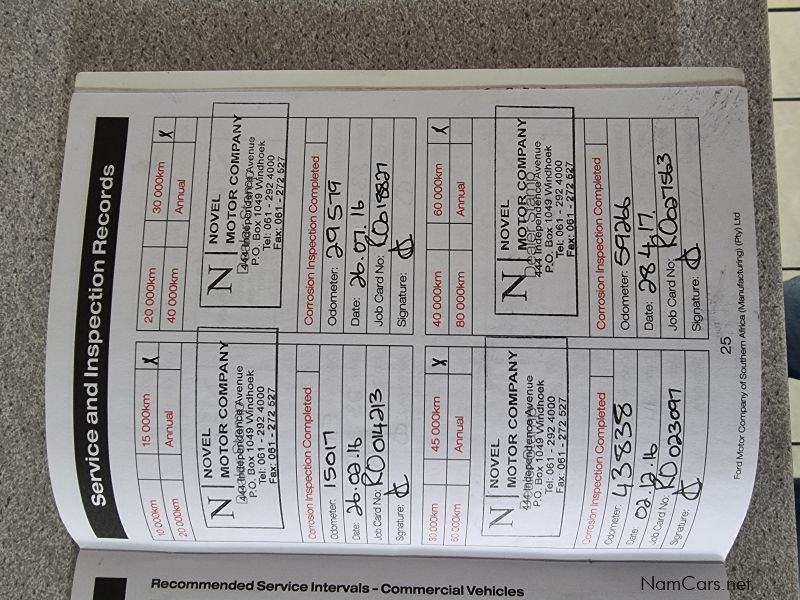 Service and Inspection Records
10 000km 15 000km X
20 000km Annual
N NOVEL
MOTOR COMPANY
444 Independence Avenue
P.O. Box 1049 Windhoek
Tel: 061 - 292 4000
Fax: 061 - 272 527
Corrosion Inspection Completed
Odometer: 15017
Date: 26.02.16
Job Card No: RO014213
Signature:
20 000km 30 000km X
40 000km Annual
N NOVEL
MOTOR COMPANY
444 Independence Avenue
P.O. Box 1049 Windhoek
Tel: 061 - 292 4000
Fax: 061 - 272 527
Corrosion Inspection Completed
Odometer: 29579
Date: 26.07.16
Job Card No: RO018827
Signature:
30 000km 45 000km X
60 000km Annual
N NOVEL
MOTOR COMPANY
444 Independence Avenue
P.O. Box 1049 Windhoek
Tel: 061 - 292 4000
Fax: 061 - 272 527
Corrosion Inspection Completed
Odometer: 43838
Date: 02.12.16
Job Card No: RO023097
Signature:
40 000km 60 000km X
80 000km Annual
N NOVEL
MOTOR COMPANY
Dealer Stamp
444 Independence Avenue
P.O. Box 1049 Windhoek
Tel: 061 - 292 4000
Fax: 061 - 272 527
Corrosion Inspection Completed
Odometer: 59266
Date: 28.4.17.
Job Card No: RO027563
Signature:
25
Ford Motor Company of Southern Africa (Manufacturing) (Pty) Ltd
Recommended Service Intervals – Commercial Vehicles
NamCars.net